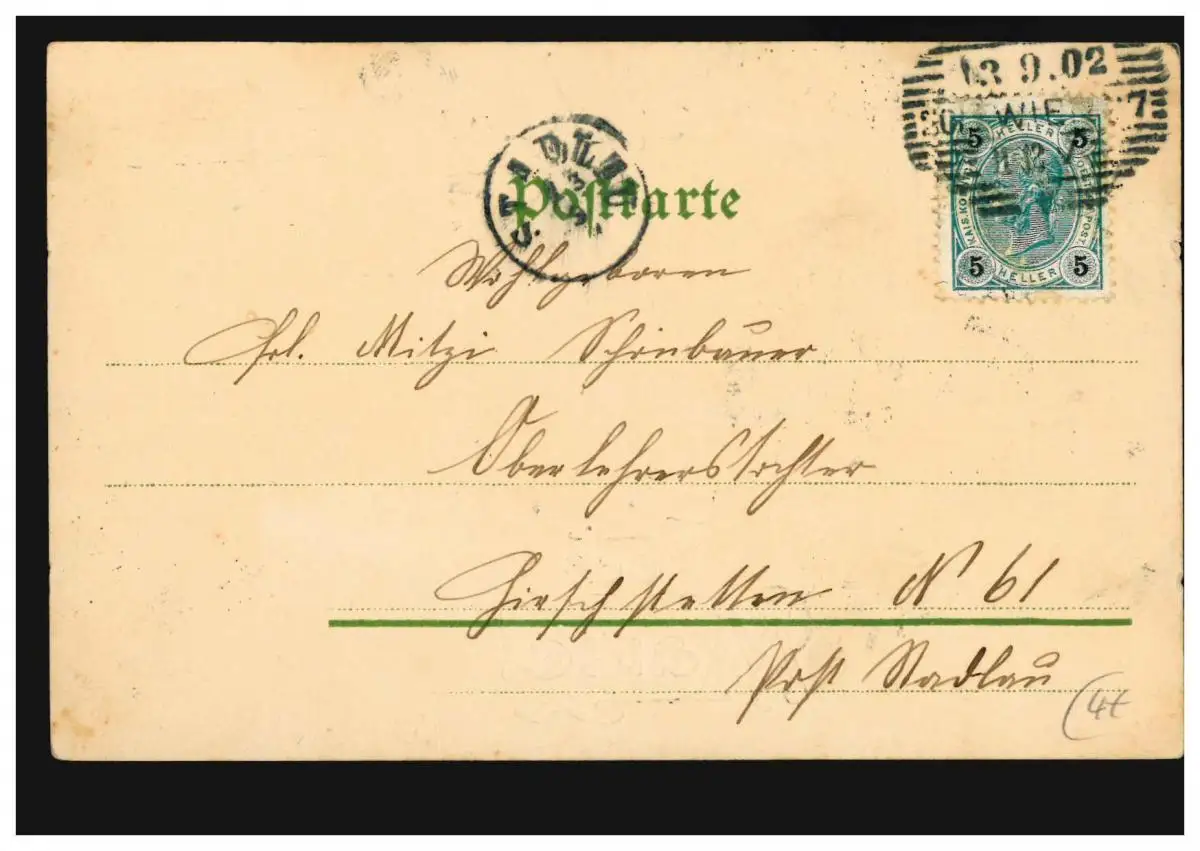 13 9.02
WIE 7
5 HELLER 5
KAIS. KÖ OEST POST.
5 HELLER 5
STADLAU
Postkarte
Wohlgeboren
Frl. Mitzi Schönbauer
Oberlehrerstochter
Hirschstetten N 61
Post Stadlau
4t